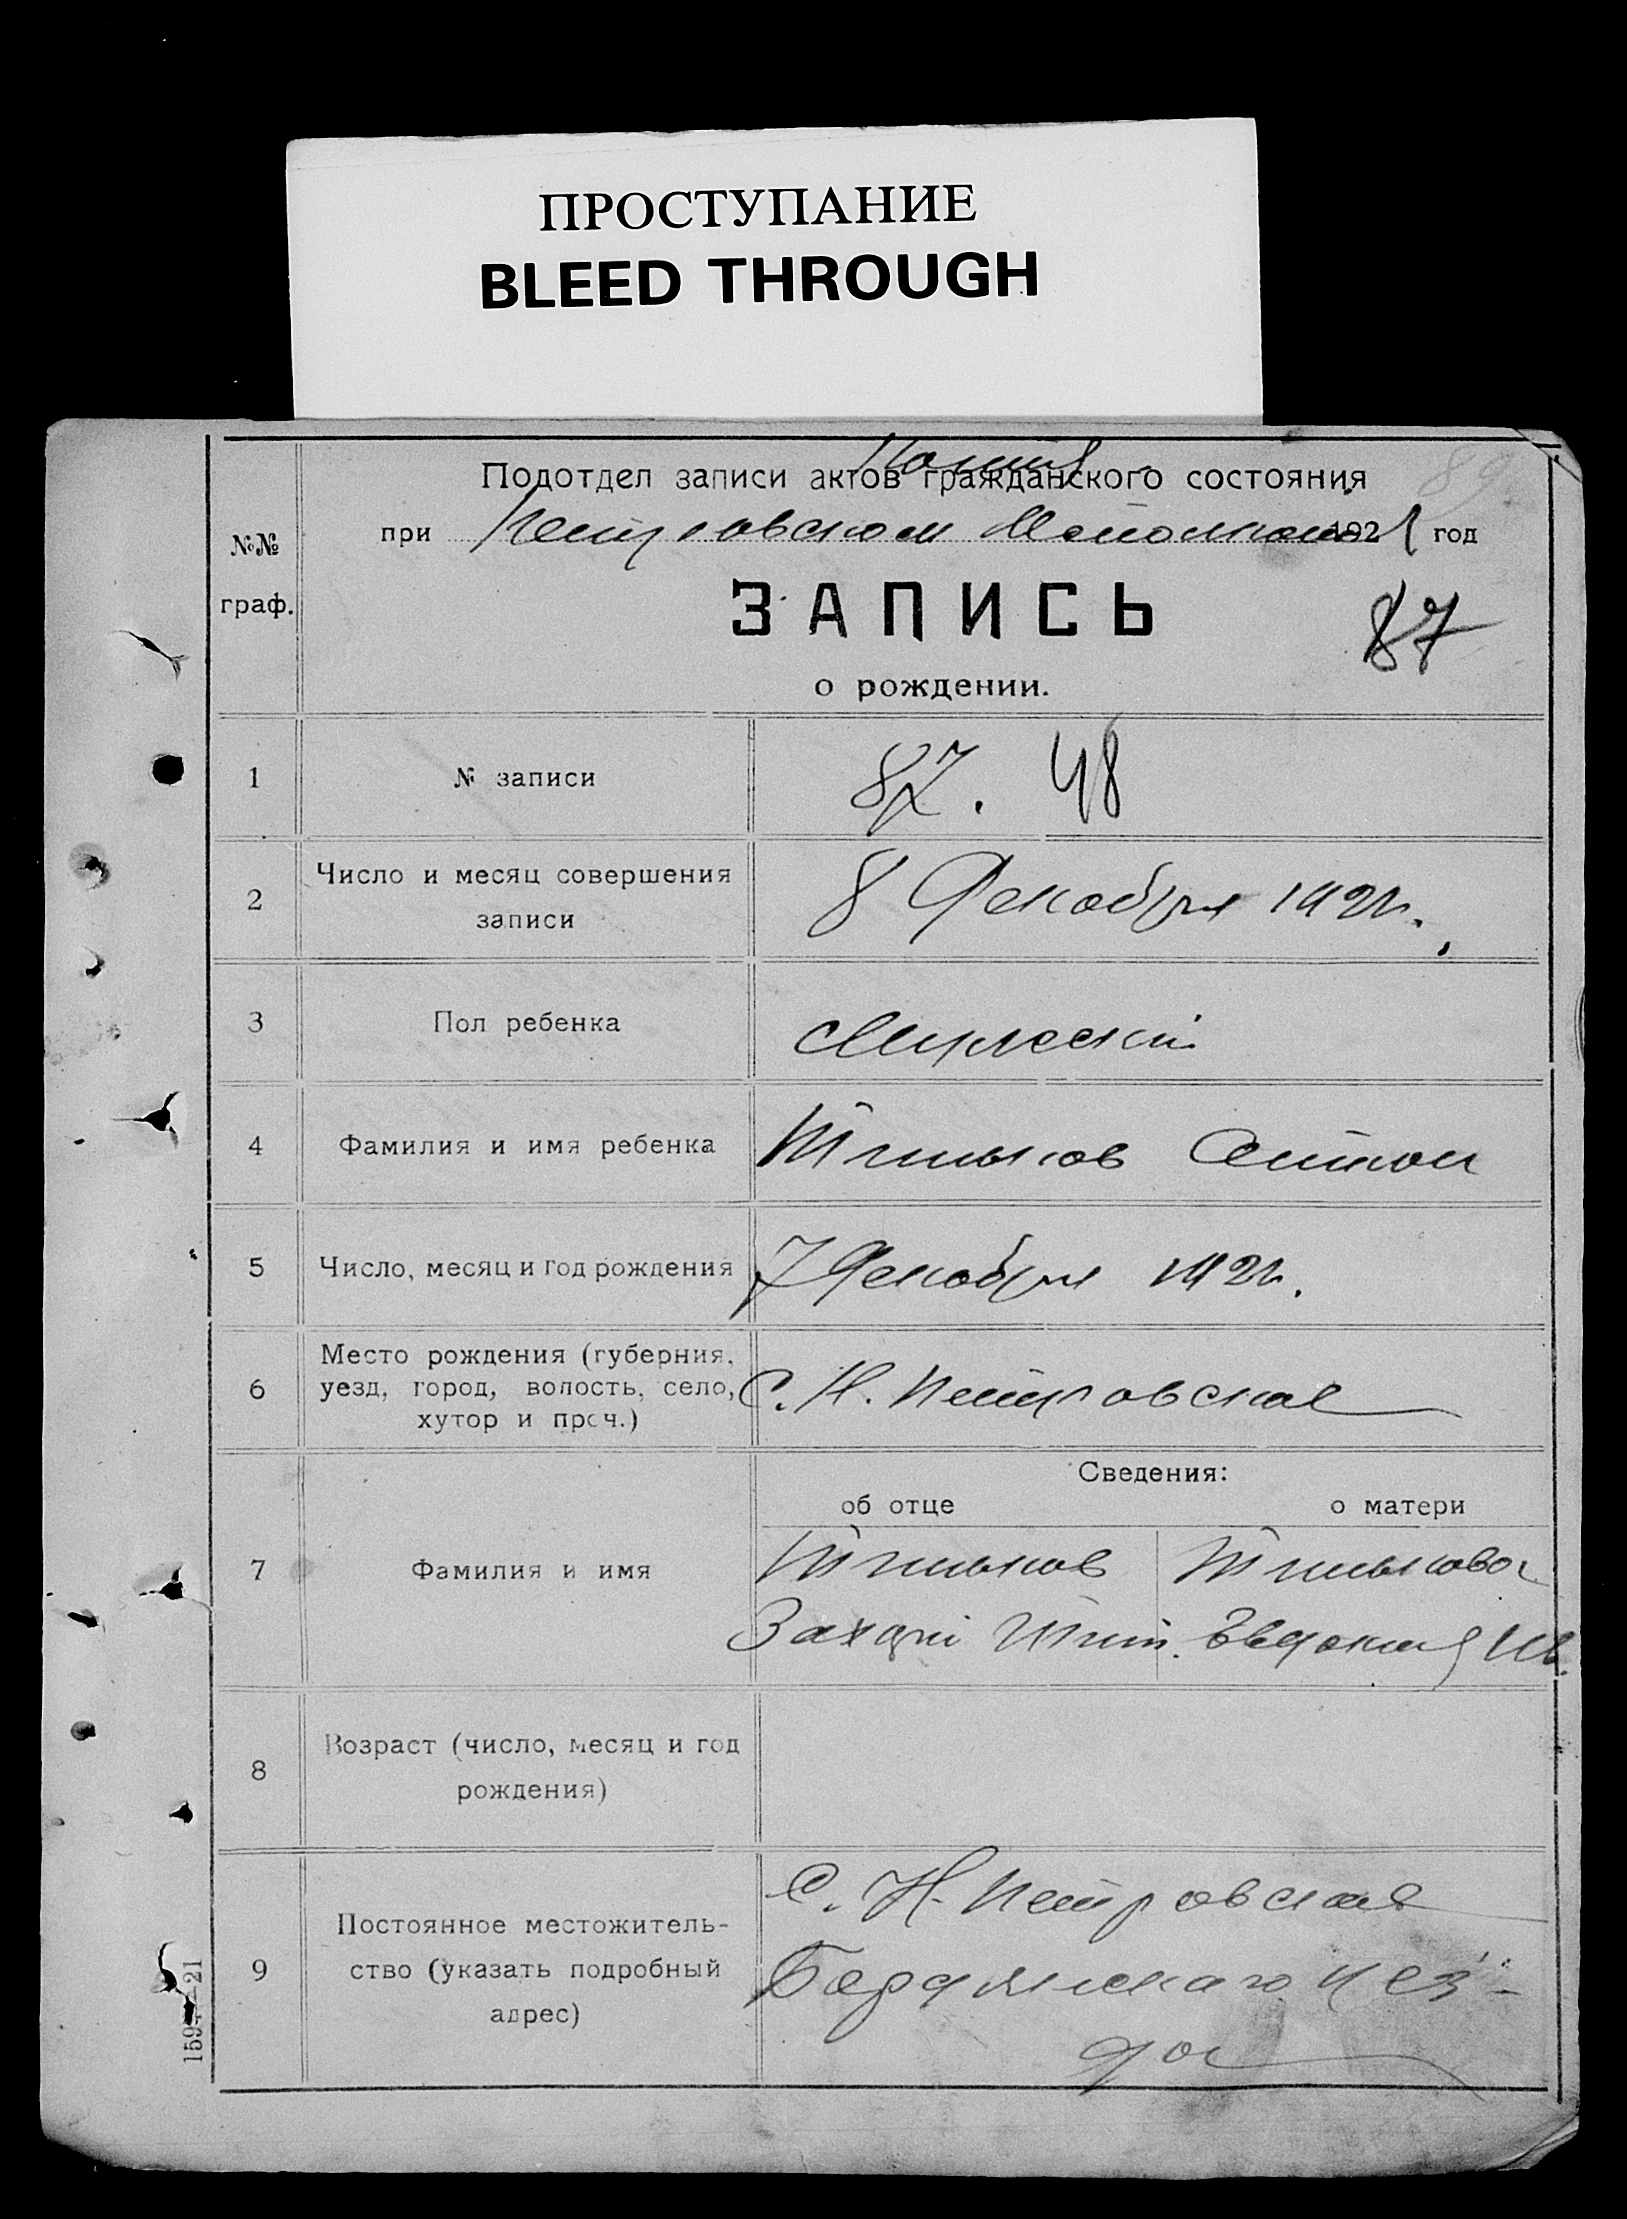 ПРОСТУПАНИЕ
BLEED THROUGH
Подотдел записи актов гражданского состояния
89
при Петровском 1921 год
№№
граф.
ЗАПИСЬ
87
о рождении.
1 № записи 87. 48
2 Число и месяц совершения
записи
8 Декабря 1921.
3 Пол ребенка Мужескій
4 Фамилия и имя ребенка Антон
5 Число, месяц и год рождения 7 Декабря 1921.
6 Место рождения (губерния,
уезд, город, волость, село,
хутор и проч.)
С. Н. Петровская
Сведения:
об отце о матери
7 Фамилия и имя
Захарий Евдокия Ив.
8 Возраст (число, месяц и год
рождения)
9 Постоянное местожитель-
ство (указать подробный
адрес)
С. Н. Петровская
Бердянскаго Уез-
да